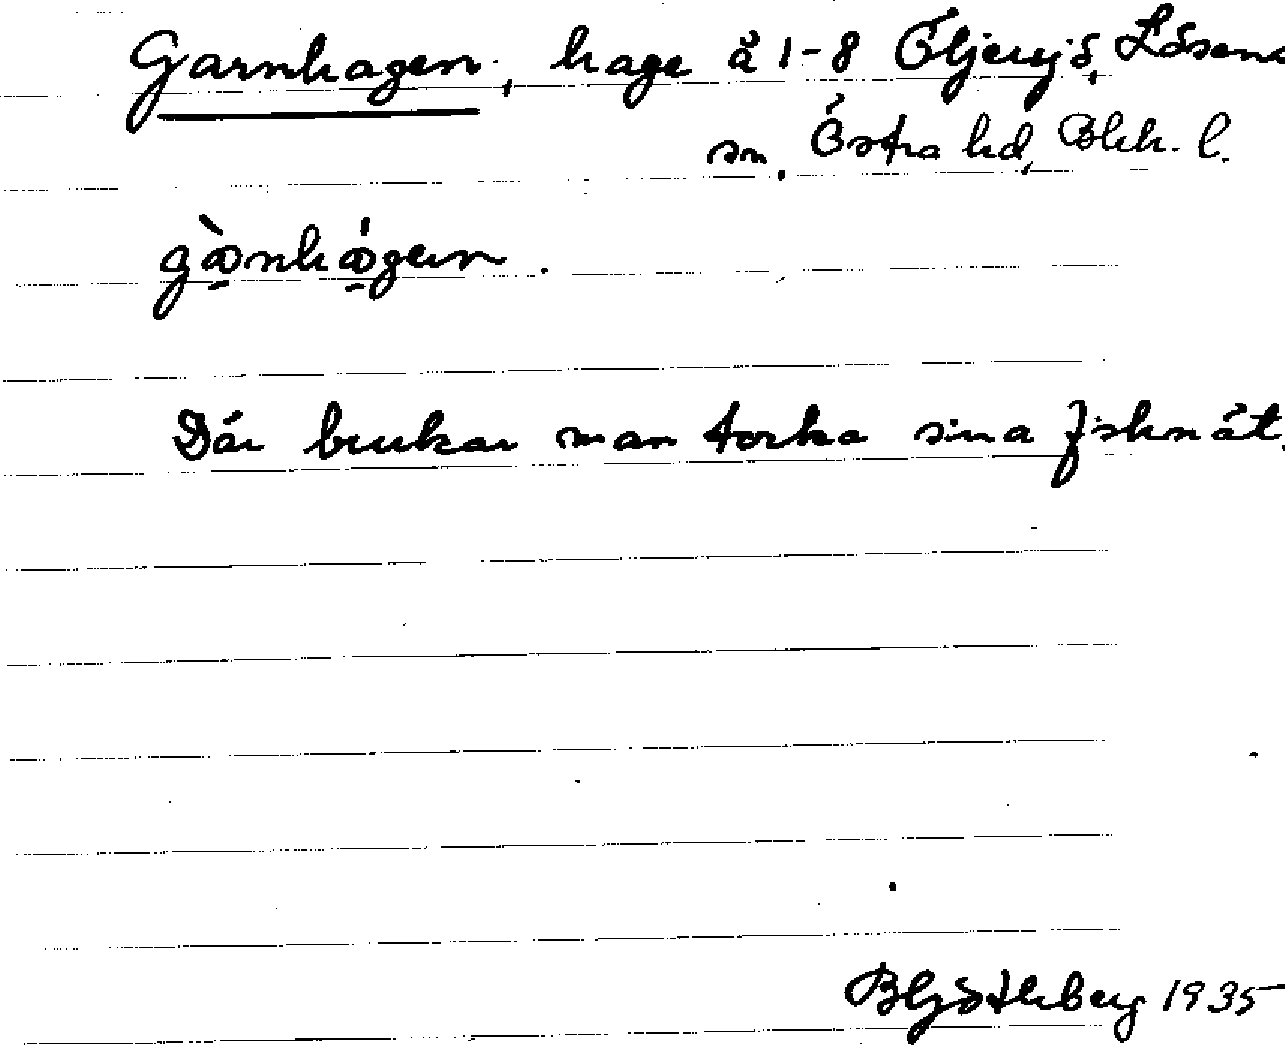 Garnhagen, hage å 1-8 Öljersjö, Lösens
sn, Östra hd, Blek. l.
Där brukar man torka sina fisknät.
B Götlberg 1935